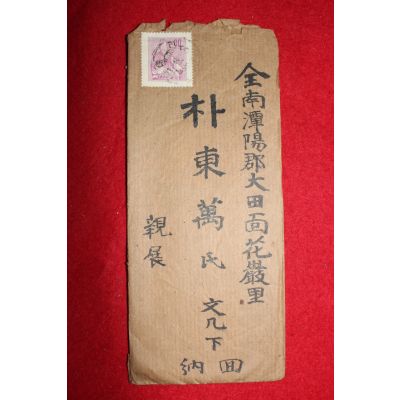 全南潭陽郡大田面花巖里
朴東萬氏 文几下
親展
回納